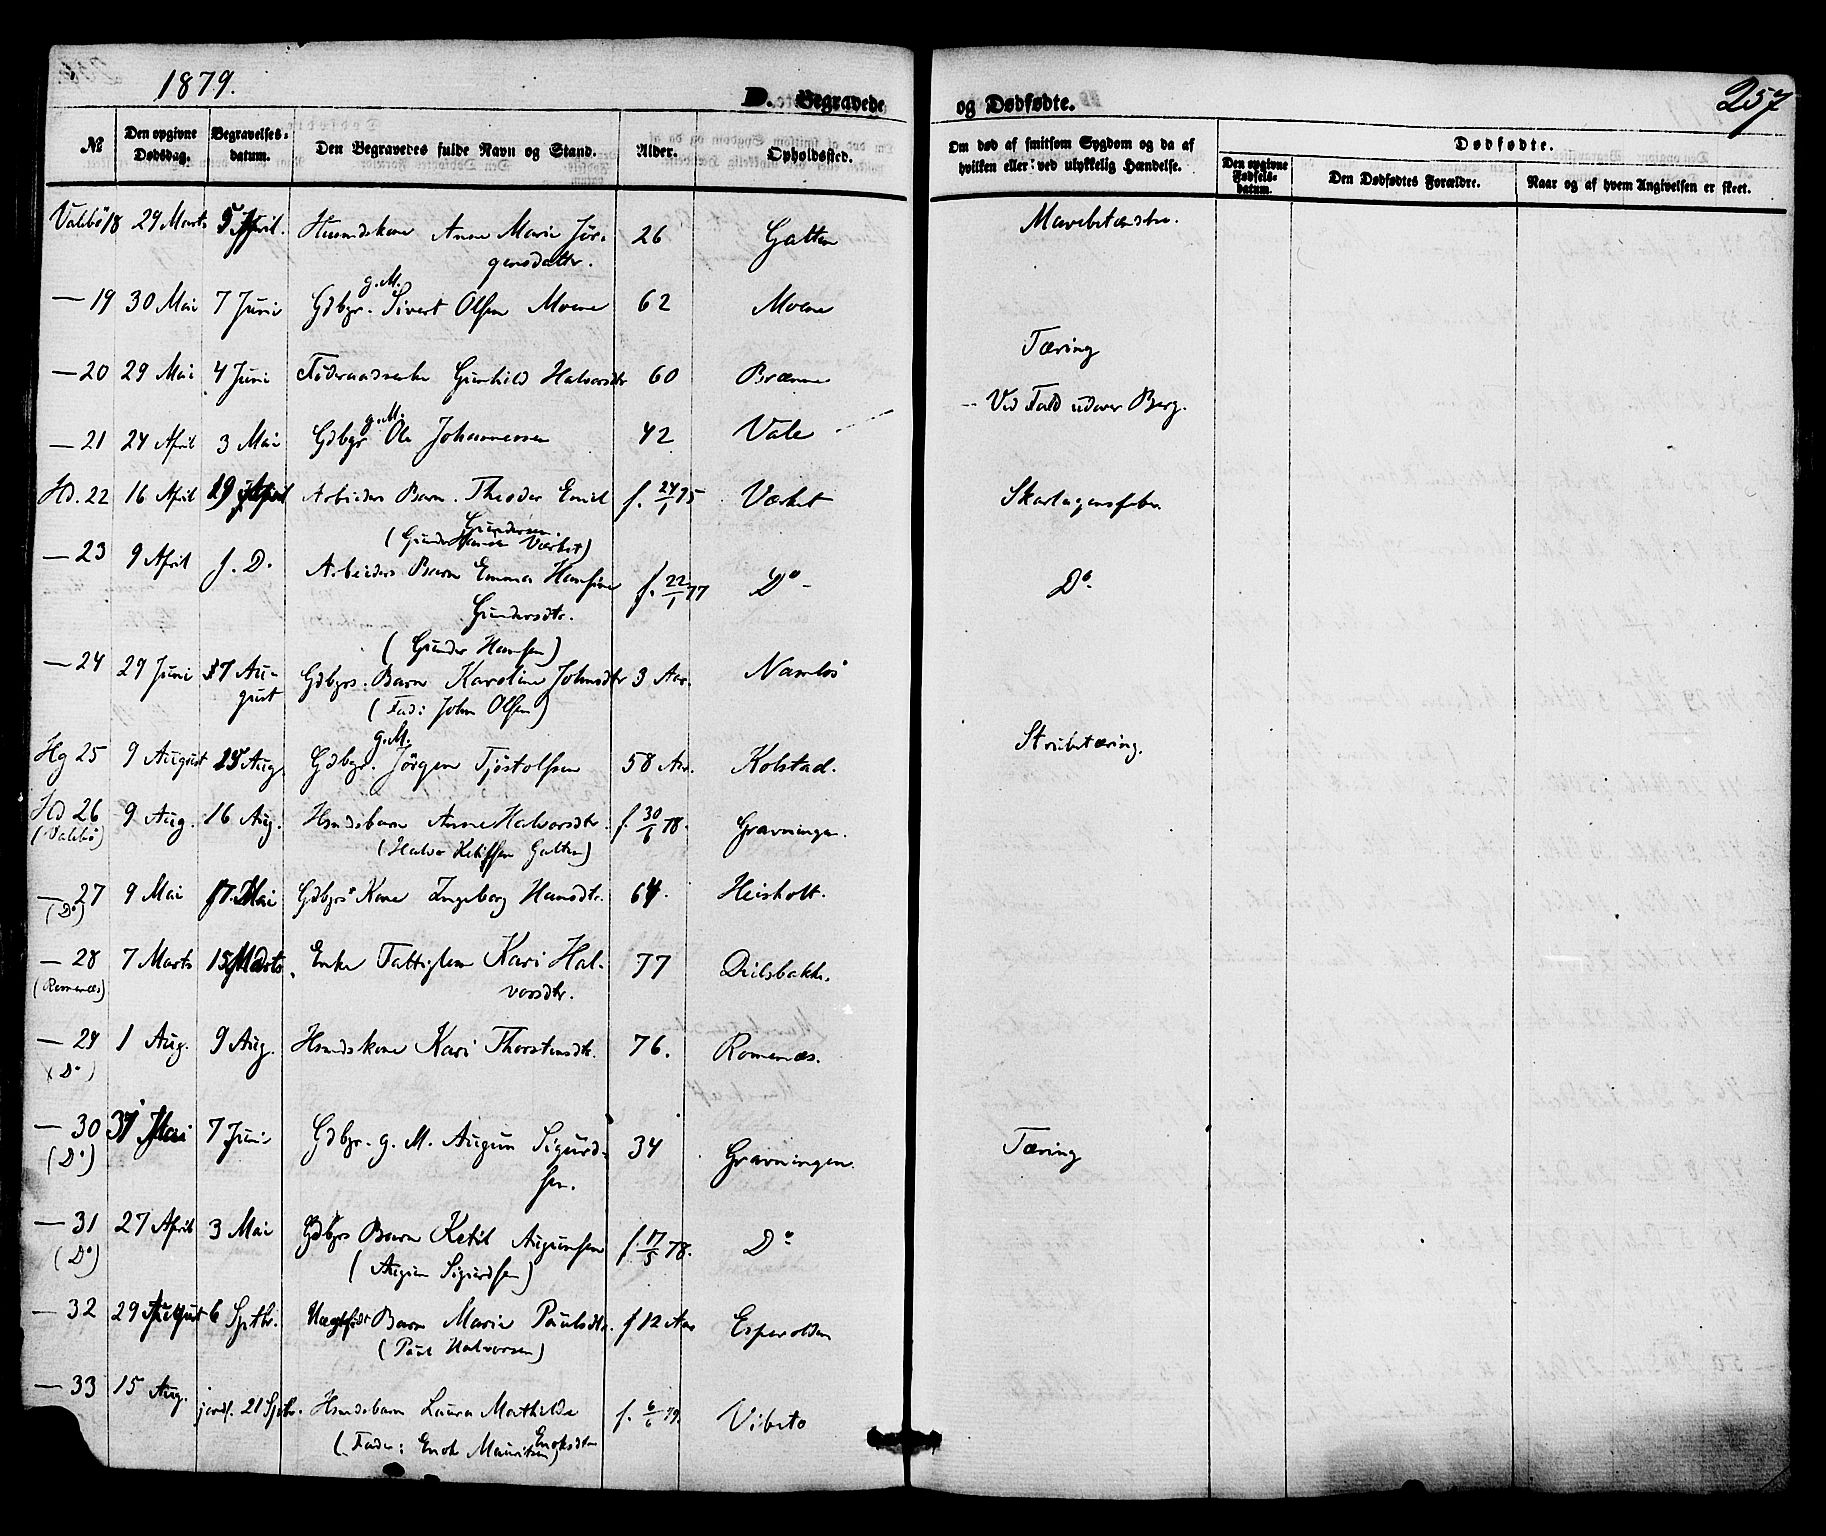 1879.
257
D. Begravede og Dødfødte.
№ Den opgivne Dødsdag. Begravelses-datum. Den Begravedes fulde Navn og Stand. Alder. Opholdssted. Om død af smitsom Sygdom og da af hvilken eller ved ulykkelig Hændelse. Dødfødte.
Den opgivne Fødsels-datum. Den Dødfødtes Forældre. Naar og af hvem Angivelsen er skeet.
Valebö 18 29 Marts 5 April. Huusmdskone Anne Marie Jör- 26 Galten Mavebetændelse.
gensdatter.
g.M.
— 19 30 Mai 7 Juni Gdbgr. Sivert Olsen Moene 62 Moene
Tæring
— 20 29 Mai 4 Juni Föderaadsenke Gunhild Halvorsdtr 60 Brænne
g.M.
Ved Fald udover Berg.
— 21 24 April 3 Mai Gdbgr Ole Johannessen 42 Vale
Hd. 22 16 April 19 April Arbeiders Barn. Theodor Emil f. 24/1 75 Værket Skarlagensfeber
Gundersen.
(Gunder Hansen Værket)
— 23 9 April f. D. Arbeiders Barn Emma Hansine f. 22/1 77 Dº Dº
Gundersdtr.
(Gunder Hansen)
— 24 29 Juni 17 Au- Gdbgrs. Barn Karoline Johnsdtr 3 Aar. Namlös
gust
(Fad: John Olsen)
g.M.
Hg 25 9 August 23 Aug Gdbgr. Jörgen Tjöstolfsen 58 Aar. Kolstad. Strubetæring.
Hd 26 9 Aug. 16 Aug. Hsmdsbarn Anne Halvorsdtr. f. 30/6 78. Gravningen.
(Valebö) (Halvor Ketilsen Galten)
— 27 9 Mai 17. Mai Gdbgrs Kone Ingeborg Hansdtr. 64. Heisholt.
(Dº)
— 28 7 Marts 15 Marts Enke Fattiglem Kari Hal- 77 Dilsbakke.
(Romenæs) vorsdtr.
— 29 1 Aug. 9 Aug. Hsmdskone Kari Thorstensdtr. 76. Romenæs.
(Dº)
— 30 31 Mai 7 Juni Gdbgr. g. M. Augun Sigurd- 34 Gravningen. Tæring
(Dº) sen.
— 31 27 April 3 Mai Gdbgrs Barn Ketil Augunsen f. 17/5 78. Dº
(Dº) (Augun Sigurdsen)
— 32 29 August 6 Sptbr. Uægtefödt Barn Marie Paulsdtr. f 12 Aar
(Paul Halvorsen)
— 33 15 Aug. jordf. 21 Sptbr. Hsmdsbarn Laura Mathilde f. 6/6 79. Vibeto
Enoksdtr
(Fader: Enok Mauritsen)